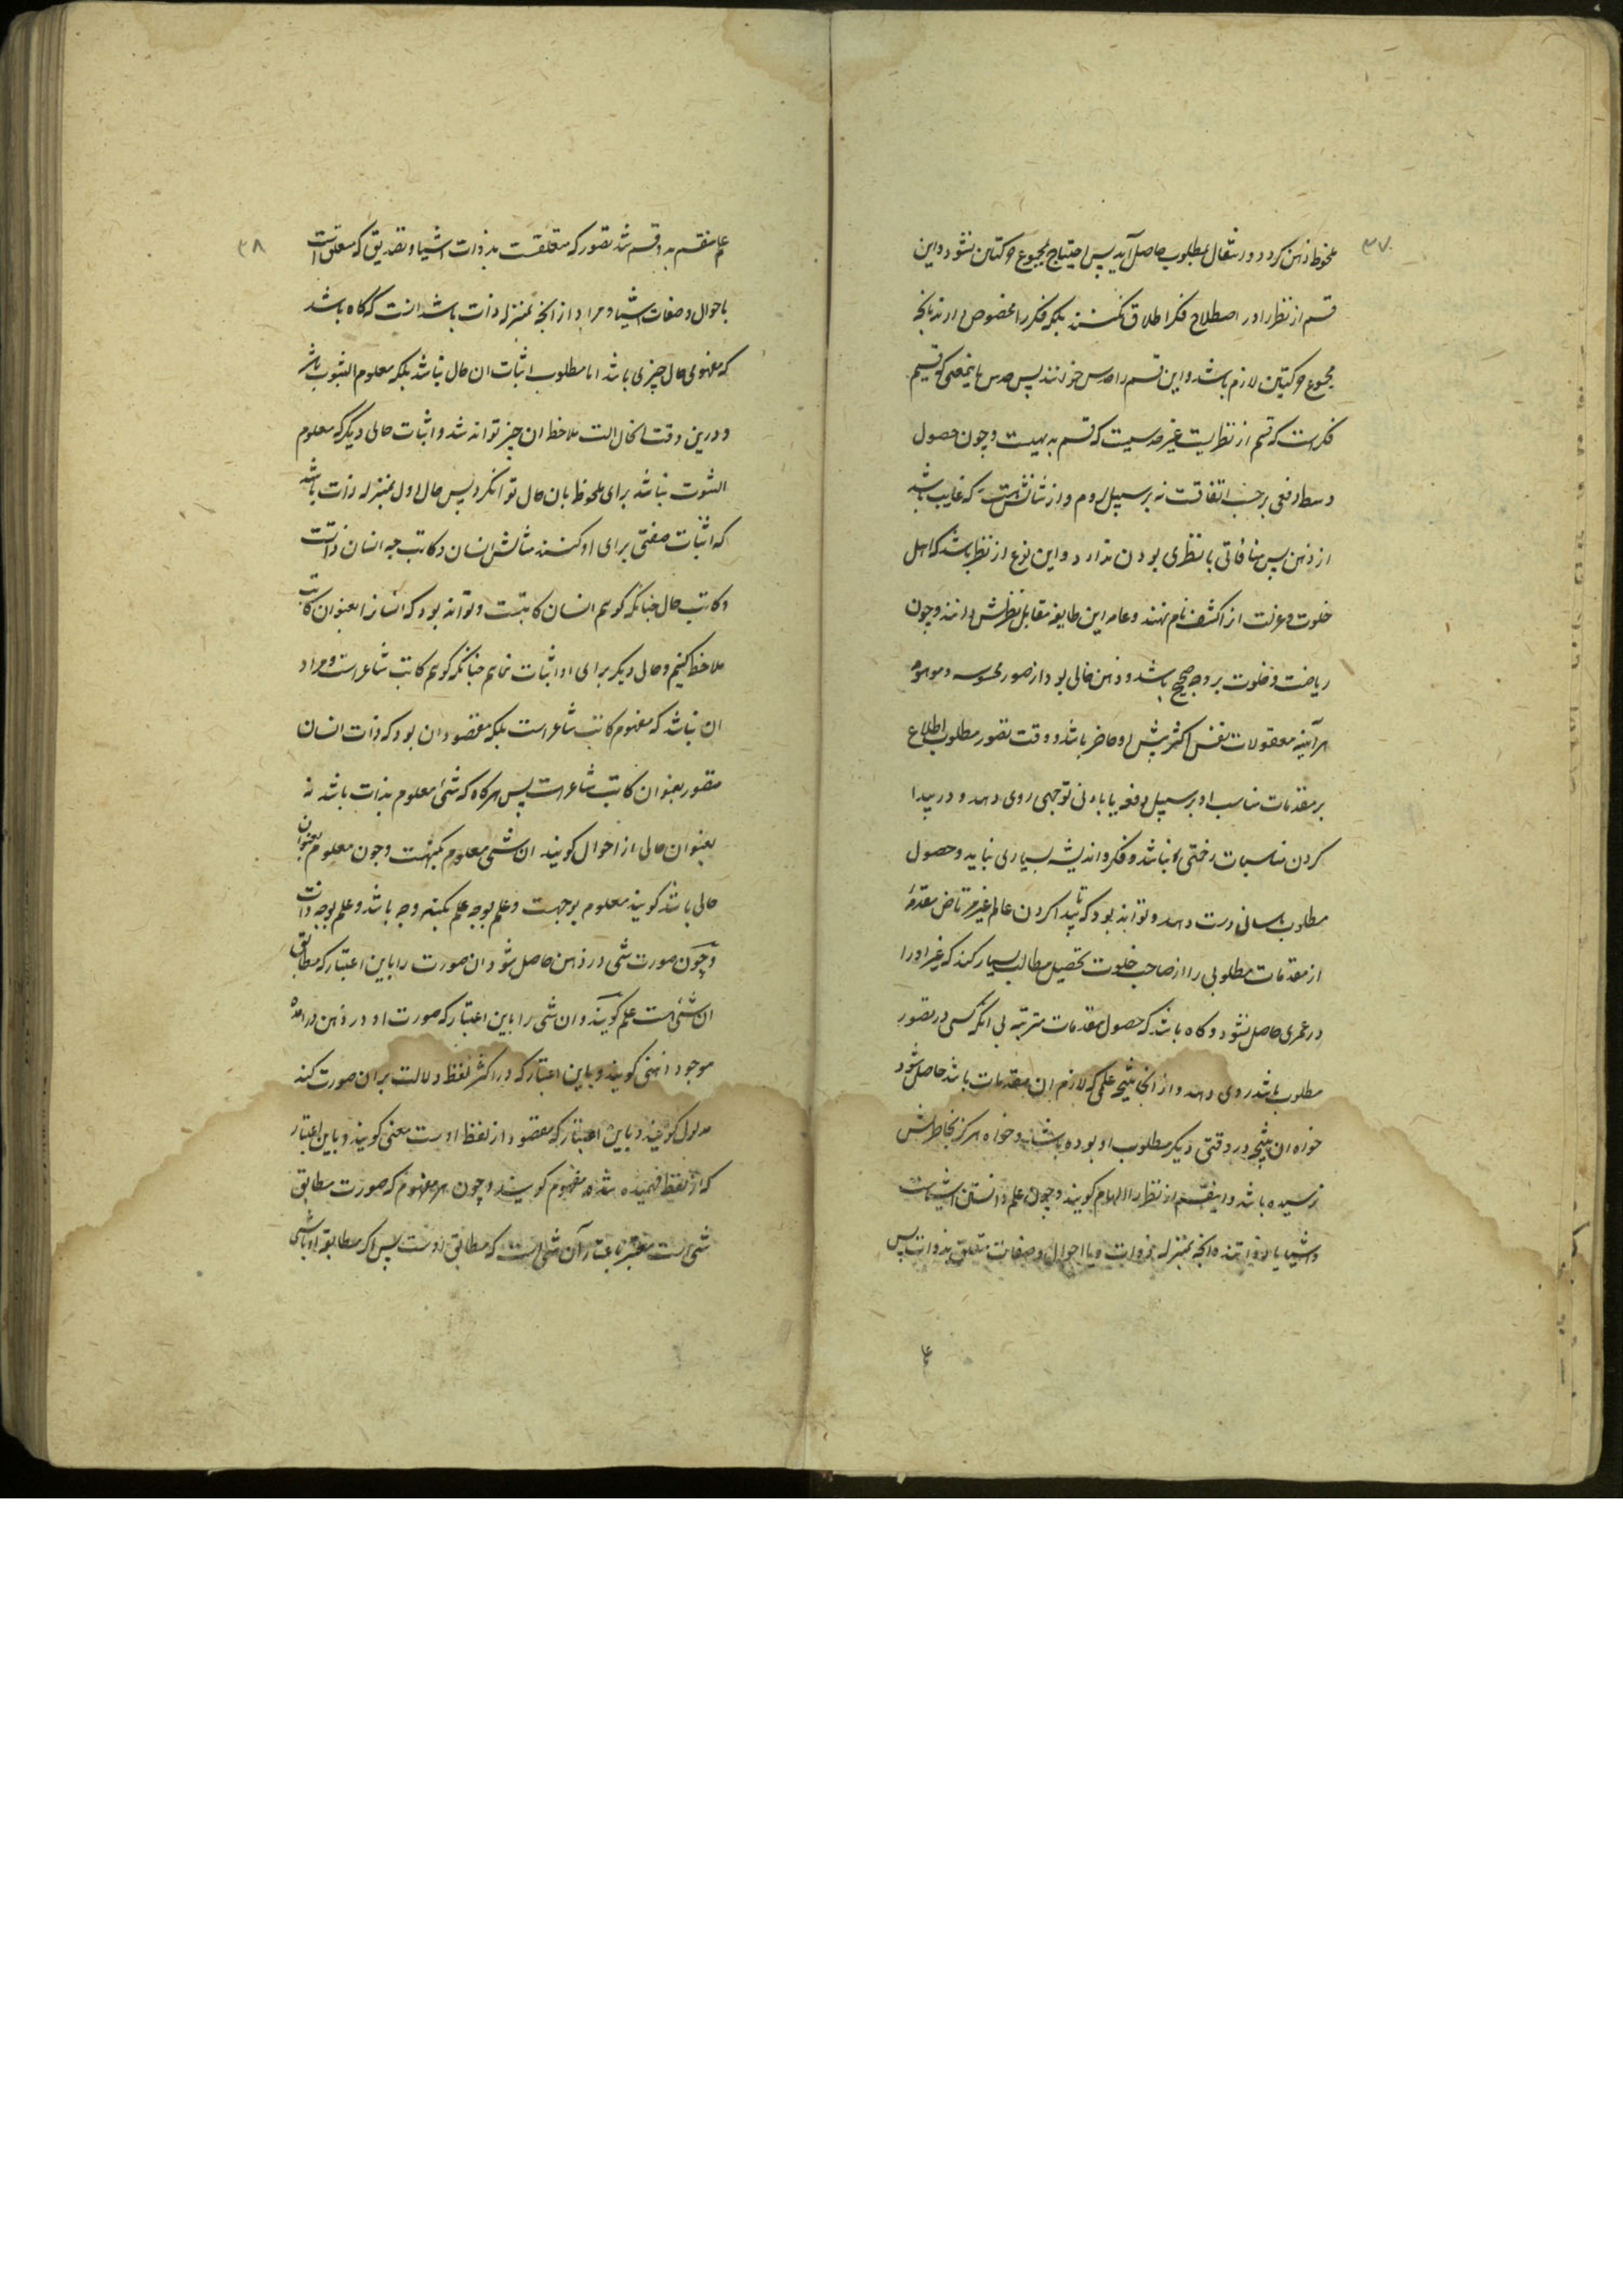 ۳۷
ملحوظ ذهن کردد و انتقال بمطلوب حاصل آید پس احتیاج بمجموع حرکتین نشود و این
قسم از نظر را در اصطلاح فکر اطلاق نکنند بلکه فکر را مخصوص دارند بانجه
مجموع حرکتین لازم باشد و این قسم را حدس خوانند پس حدس باینمعنی که قسیم
فکر است که قسم از نظریست غیر حدسیست که قسم بدیهیست و چون حصول
وسط دفعی برحسب اتفاقست نه بر سبیل لزوم و از شانش است که غایب باشد
از ذهن پس منافاتی با نظری بودن ندارد و این نوع از نظر باشد که اهل
خلوت و عزلت انرا کشف نام نهند و عامه این طایفه مقابل نظرش دانند و چون
ریاضت و خلوت بر وجه صحیح باشد و ذهن خالی بود از صور محسوسه و موهومه
هرآینه معقولات نفس اکثر پیش او حاضر باشد و وقت تصور مطلوب اطلاع
بر مقدمات مناسب او بر سبیل دفعه یا بادنی توجهی روی دهد و در پیدا
کردن مناسبات زحمتی نباشد و فکر و اندیشه بسیاری نباید و حصول
مطلوب باسانی دست دهد و تواند بود که تا پیدا کردن عالم غیر مرتاض مقدمهٔ
از مقدمات مطلوبی را از صاحب خلوت تحصیل مطالب بسیار کند که غیر او را
در عمری حاصل نشود و کاه باشد که حصول مقدمات مترتبه بی انکه کسی در تصور
مطلوب باشد روی دهد و از انجا نتیجهٔ علمی که لازم ان مقدمات باشد حاصل شود
خواه ان نتیجه در وقتی دیکر مطلوب او بوده باشد و خواه هرکز بخاطرش
نرسیده باشد و اینقسم از نظر را الهام کویند و چون علم دانستن اشیاست
و اشیا یا ذواتند و انجه بمنزله ذوات و یا احوال و صفات متعلق بذوات پس
۳۸
علم منقسم بدو قسم شد تصور که متعلقست بذوات اشیا و تصدیق که متعلق است
باحوال و صفات اشیا و مراد از انجه بمنزله ذات باشد انست که کاه باشد
که مفهومی حال چیزی باشد اما مطلوب اثبات ان حال نباشد بلکه معلوم الثبوت باشد
و درین وقت انحال الت ملاحظهٔ ان چیز تواند شد و اثبات حالی دیکر که معلوم
الثبوت نباشد برای ملحوظ بان حال توانکرد پس حال اول بمنزله ذات باشد
که اثبات صفتی برای او کنند مثالش انسان و کاتب چه انسان ذاتست
و کاتب حال چنانکه کویم انسان کاتبست و تواند بود که انسانرا بعنوان کاتب
ملاحظه کنیم و حالی دیکر برای او اثبات نمائیم چنانکه کویم کاتب شاعر است و مراد
ان نباشد که مفهوم کاتب شاعر است بلکه مقصود ان بود که ذات انسان
متصور بعنوان کاتب شاعر است پس هرکاه که شئ معلوم بذات باشد نه
بعنوان حالی از احوال کویند ان شی معلوم بکنهست و چون معلوم بعنوان
حالی باشد کویند معلوم بوجهست و علم بوجه علم بکنه وجه باشد و علم بوجه ذات
و چون صورت شی در ذهن حاصل شود ان صورت را باین اعتبار که مطابق
ان شئ است علم کویند و ان شی را باین اعتبار که صورت او در ذهن درامده
موجود ذهنی کویند و باین اعتبار که در اکثر لفظ دلالت بران صورت کند
مدلول کویند و باین اعتبار که مقصود از لفظ اوست معنی کویند و باین اعتبار
که از لفظ فهمیده شده مفهوم کویند و چون هر مفهوم که صورت مطابق
شی است معتبر باعتبار آن شی است که مطابق اوست پس اکر مطابق او باشی